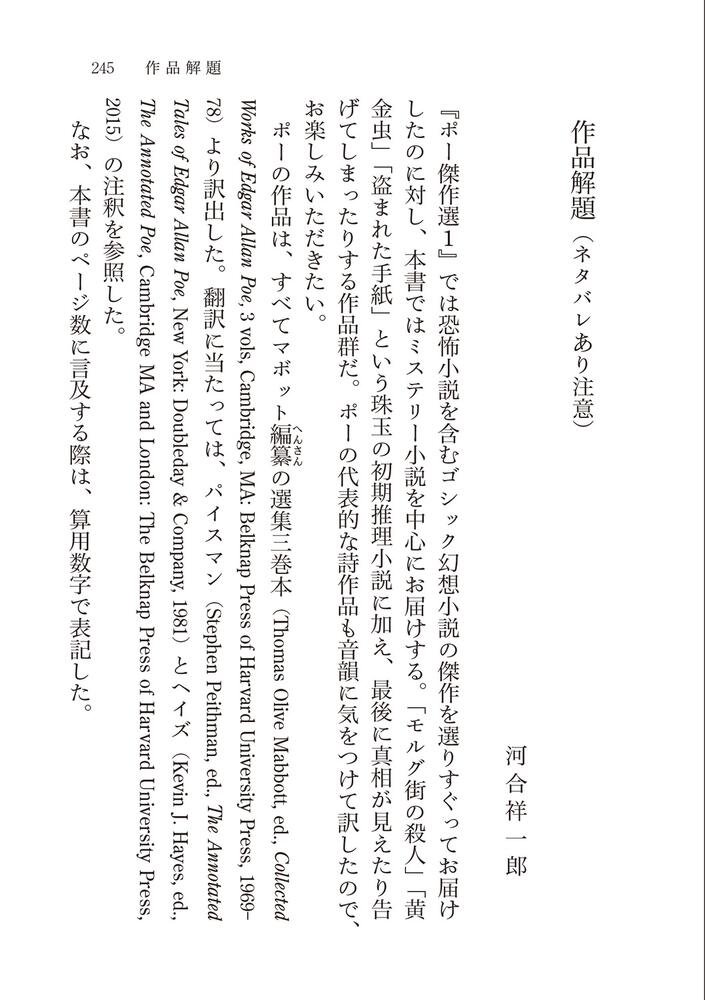 245　作品解題
作品解題（ネタバレあり注意）
河合祥一郎
『ポー傑作選1』では恐怖小説を含むゴシック幻想小説の傑作を選りすぐってお届け
したのに対し、本書ではミステリー小説を中心にお届けする。「モルグ街の殺人」「黄
金虫」「盗まれた手紙」という珠玉の初期推理小説に加え、最後に真相が見えたり告
げてしまったりする作品群だ。ポーの代表的な詩作品も音韻に気をつけて訳したので、
お楽しみいただきたい。
ポーの作品は、すべてマボット編纂の選集三巻本（Thomas Olive Mabbott, ed., Collected
へんさん
Works of Edgar Allan Poe, 3 vols, Cambridge, MA: Belknap Press of Harvard University Press, 1969–
78）より訳出した。翻訳に当たっては、パイスマン（Stephen Peithman, ed., The Annotated
Tales of Edgar Allan Poe, New York: Doubleday & Company, 1981）とヘイズ（Kevin J. Hayes, ed.,
The Annotated Poe, Cambridge MA and London: The Belknap Press of Harvard University Press,
2015）の注釈を参照した。
なお、本書のページ数に言及する際は、算用数字で表記した。